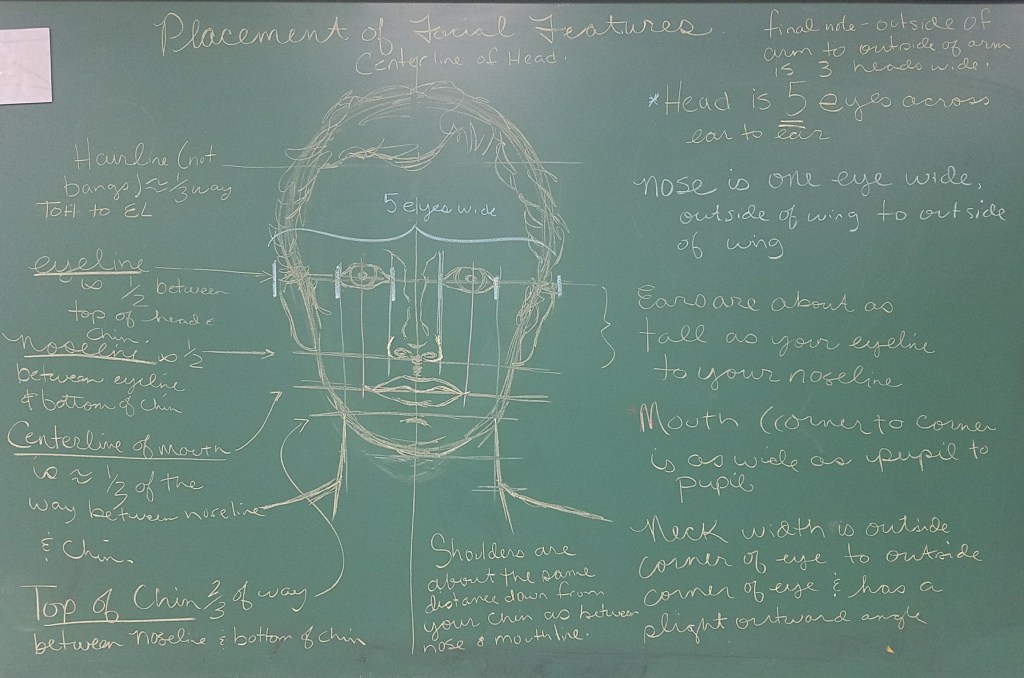 Placement of Facial Features.
Centerline of Head.
final note - outside of
arm to outside of arm
is 3 heads wide.
*Head is 5 eyes across
ear to ear
Hairline (not
bangs) ≈ 1/3 way
TOH to EL
5 eyes wide
nose is one eye wide,
outside of wing to outside
of wing
eyeline
is 1/2 between
top of head &
chin.
Noseline is 1/2
between eyeline
& bottom of chin
Ears are about as
tall as your eyeline
to your noseline
Centerline of mouth
is ≈ 1/3 of the
way between noseline
& Chin.
Mouth (corner to corner
is as wide as pupil to
pupil
Top of Chin 2/3 of way
between noseline & bottom of chin
Shoulders are
about the same
distance down from
your chin as between
nose & mouthline.
Neck width is outside
corner of eye to outside
corner of eye & has a
slight outward angle